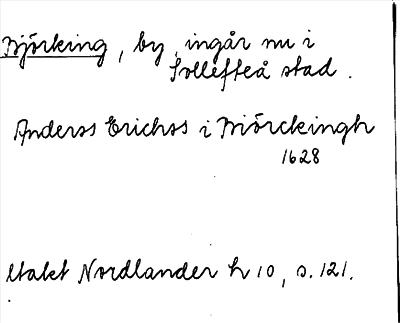 Björking, by, ingår nu i
Sollefteå stad.
Anderss Erichss i Biörckingh
1628
Nordlander h 10, s. 121.